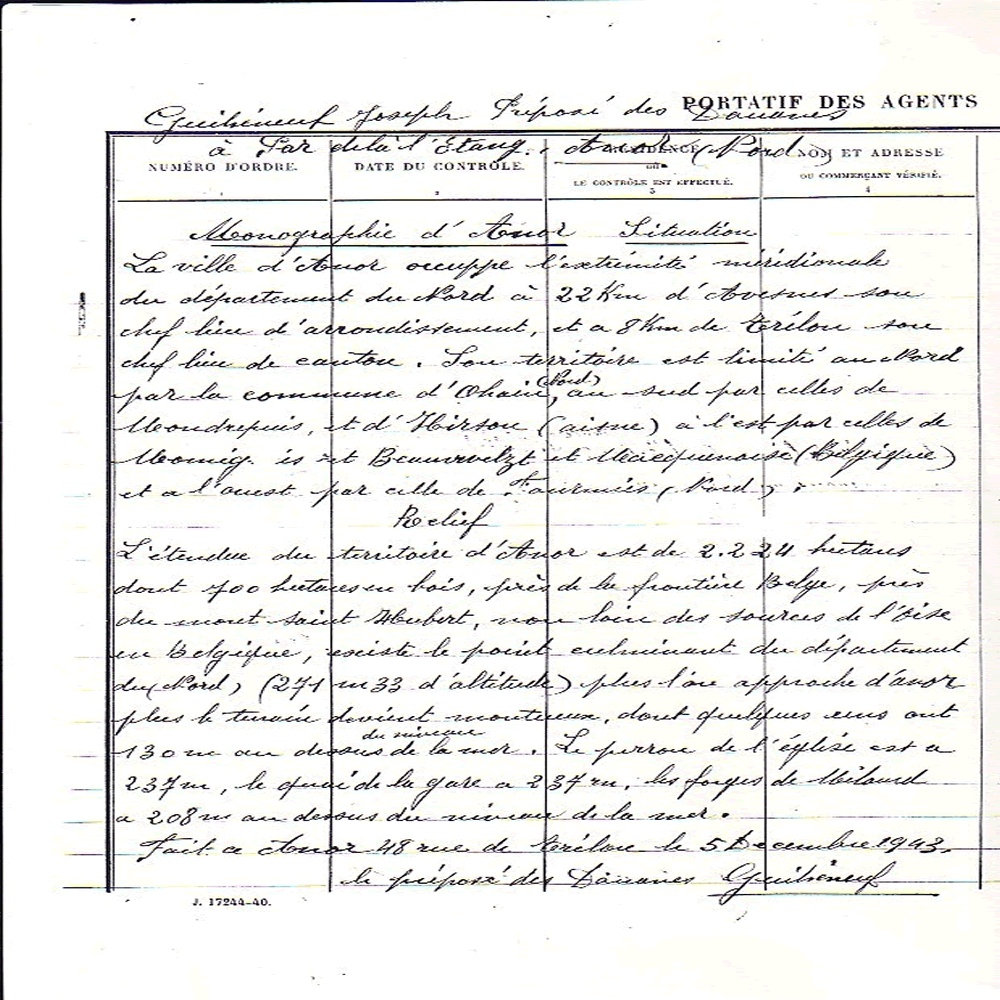 PORTATIF DES AGENTS
Guihéneuf Joseph Préposé des Douanes
à Par delà l'Étang. Anor (Nord)
NUMÉRO D'ORDRE.
DATE DU CONTRÔLE.
2
LE CONTRÔLE EST EFFECTUÉ.
3
NOM ET ADRESSE
OU COMMERÇANT VÉRIFIÉ.
4
Monographie d'Anor Situation
La ville d'Anor occuppe l'extrémité méridionale
du département du Nord à 22 Km d'Avesnes son
chef lieu d'arrondissement, et a 8 Km de Trélon son
chef lieu de canton. Son territoire est limité au Nord
par la commune d'Ohain (Nord), au sud par celles de
Mondrepuis, et d'Hirson (aisne) à l'est par celles de
Momig. is et Beauwelzt et Macquenoise (Belgique)
et a l'ouest par celle de Fourmies (Nord).
Relief
L'étendue du territoire d'Anor est de 2.224 hectares
dont 700 hectares en bois, près de la frontière Belge, près
du mont saint Hubert, non loin des sources de l'Oise
en Belgique, existe le point culminant du département
du Nord, (271 m 33 d'altitude) plus l'on approche d'anor
plus le terrain devient montueux, dont quelques uns ont
130 m au dessus du niveau de la mer. Le perron de l'église est a
237 m, le quai de la gare a 237 m, les forges de Milourd
a 208 m au dessus du niveau de la mer.
Fait a Anor 48 rue de Trélon le 5 Décembre 1943.
le préposé des Douanes Guihéneuf
J. 17244-40.